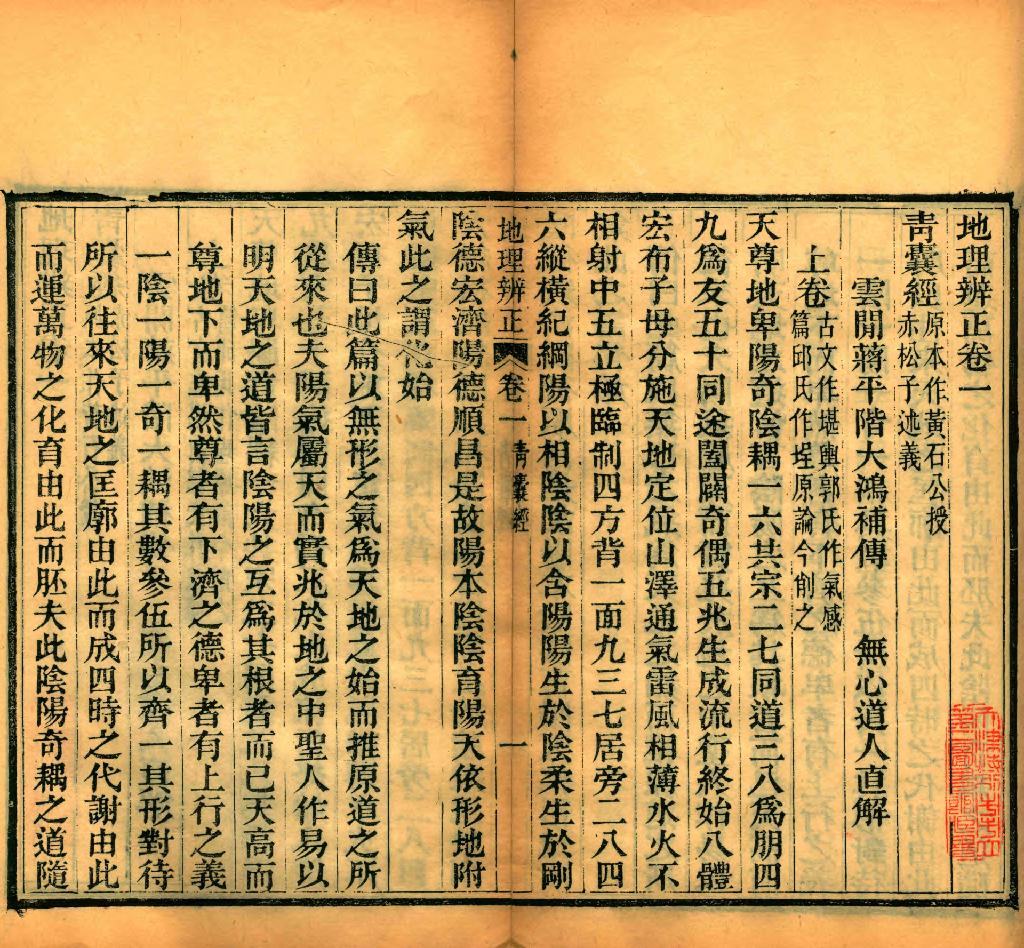 地理辨正卷一
青囊經原本作黃石公授
赤松子述義
雲間蔣平階大鴻補傳 無心道人直解
上卷古文作堪輿郭氏作氣感
篇邱氏作埕原論今削之
天尊地卑陽奇陰耦一六共宗二七同道三八爲朋四
九爲友五十同途闔闢奇偶五兆生成流行終始八體
宏布子母分施天地定位山澤通氣雷風相薄水火不
相射中五立極臨制四方背一面九三七居旁二八四
六縱橫紀綱陽以相陰陰以含陽陽生於陰柔生於剛
陰德宏濟陽德順昌是故陽本陰陰育陽天依形地附
氣此之謂化始
傳曰此篇以無形之氣爲天地之始而推原道之所
從來也夫陽氣屬天而實兆於地之中聖人作易以
明天地之道皆言陰陽之互爲其根者而已天高而
尊地下而卑然尊者有下濟之德卑者有上行之義
一陰一陽一奇一耦其數參伍所以齊一其形對待
所以往來天地之匡廓由此而成四時之代謝由此
而運萬物之化育由此而胚夫此陰陽奇耦之道隨
地理辨正 卷一 青囊經 一